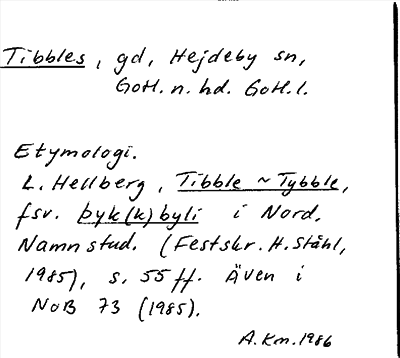 Tibbles, gd, Hejdeby sn,
Gotl. n. hd. Gotl. l.
Etymologi.
L. Hellberg, Tibble ~ Tybble,
fsv. þyk(k)byli i Nord.
Namnstud. (Festskr. H. Ståhl,
1985), s. 55 ff. Även i
NoB 73 (1985).
A. Km. 1986